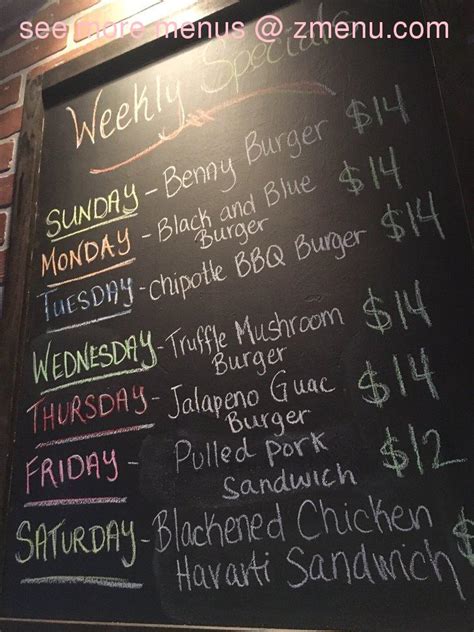 see more menus @ zmenu.com
Weekly Specials
SUNDAY - Benny Burger $14
MONDAY - Black and Blue $14
Burger
TUESDAY - chipotle BBQ Burger $14
WEDNESDAY - Truffle Mushroom $14
Burger
THURSDAY - Jalapeno Guac $14
Burger
FRIDAY - Pulled pork $12
Sandwich
SATURDAY - Blackened Chicken
Havarti Sandwich $